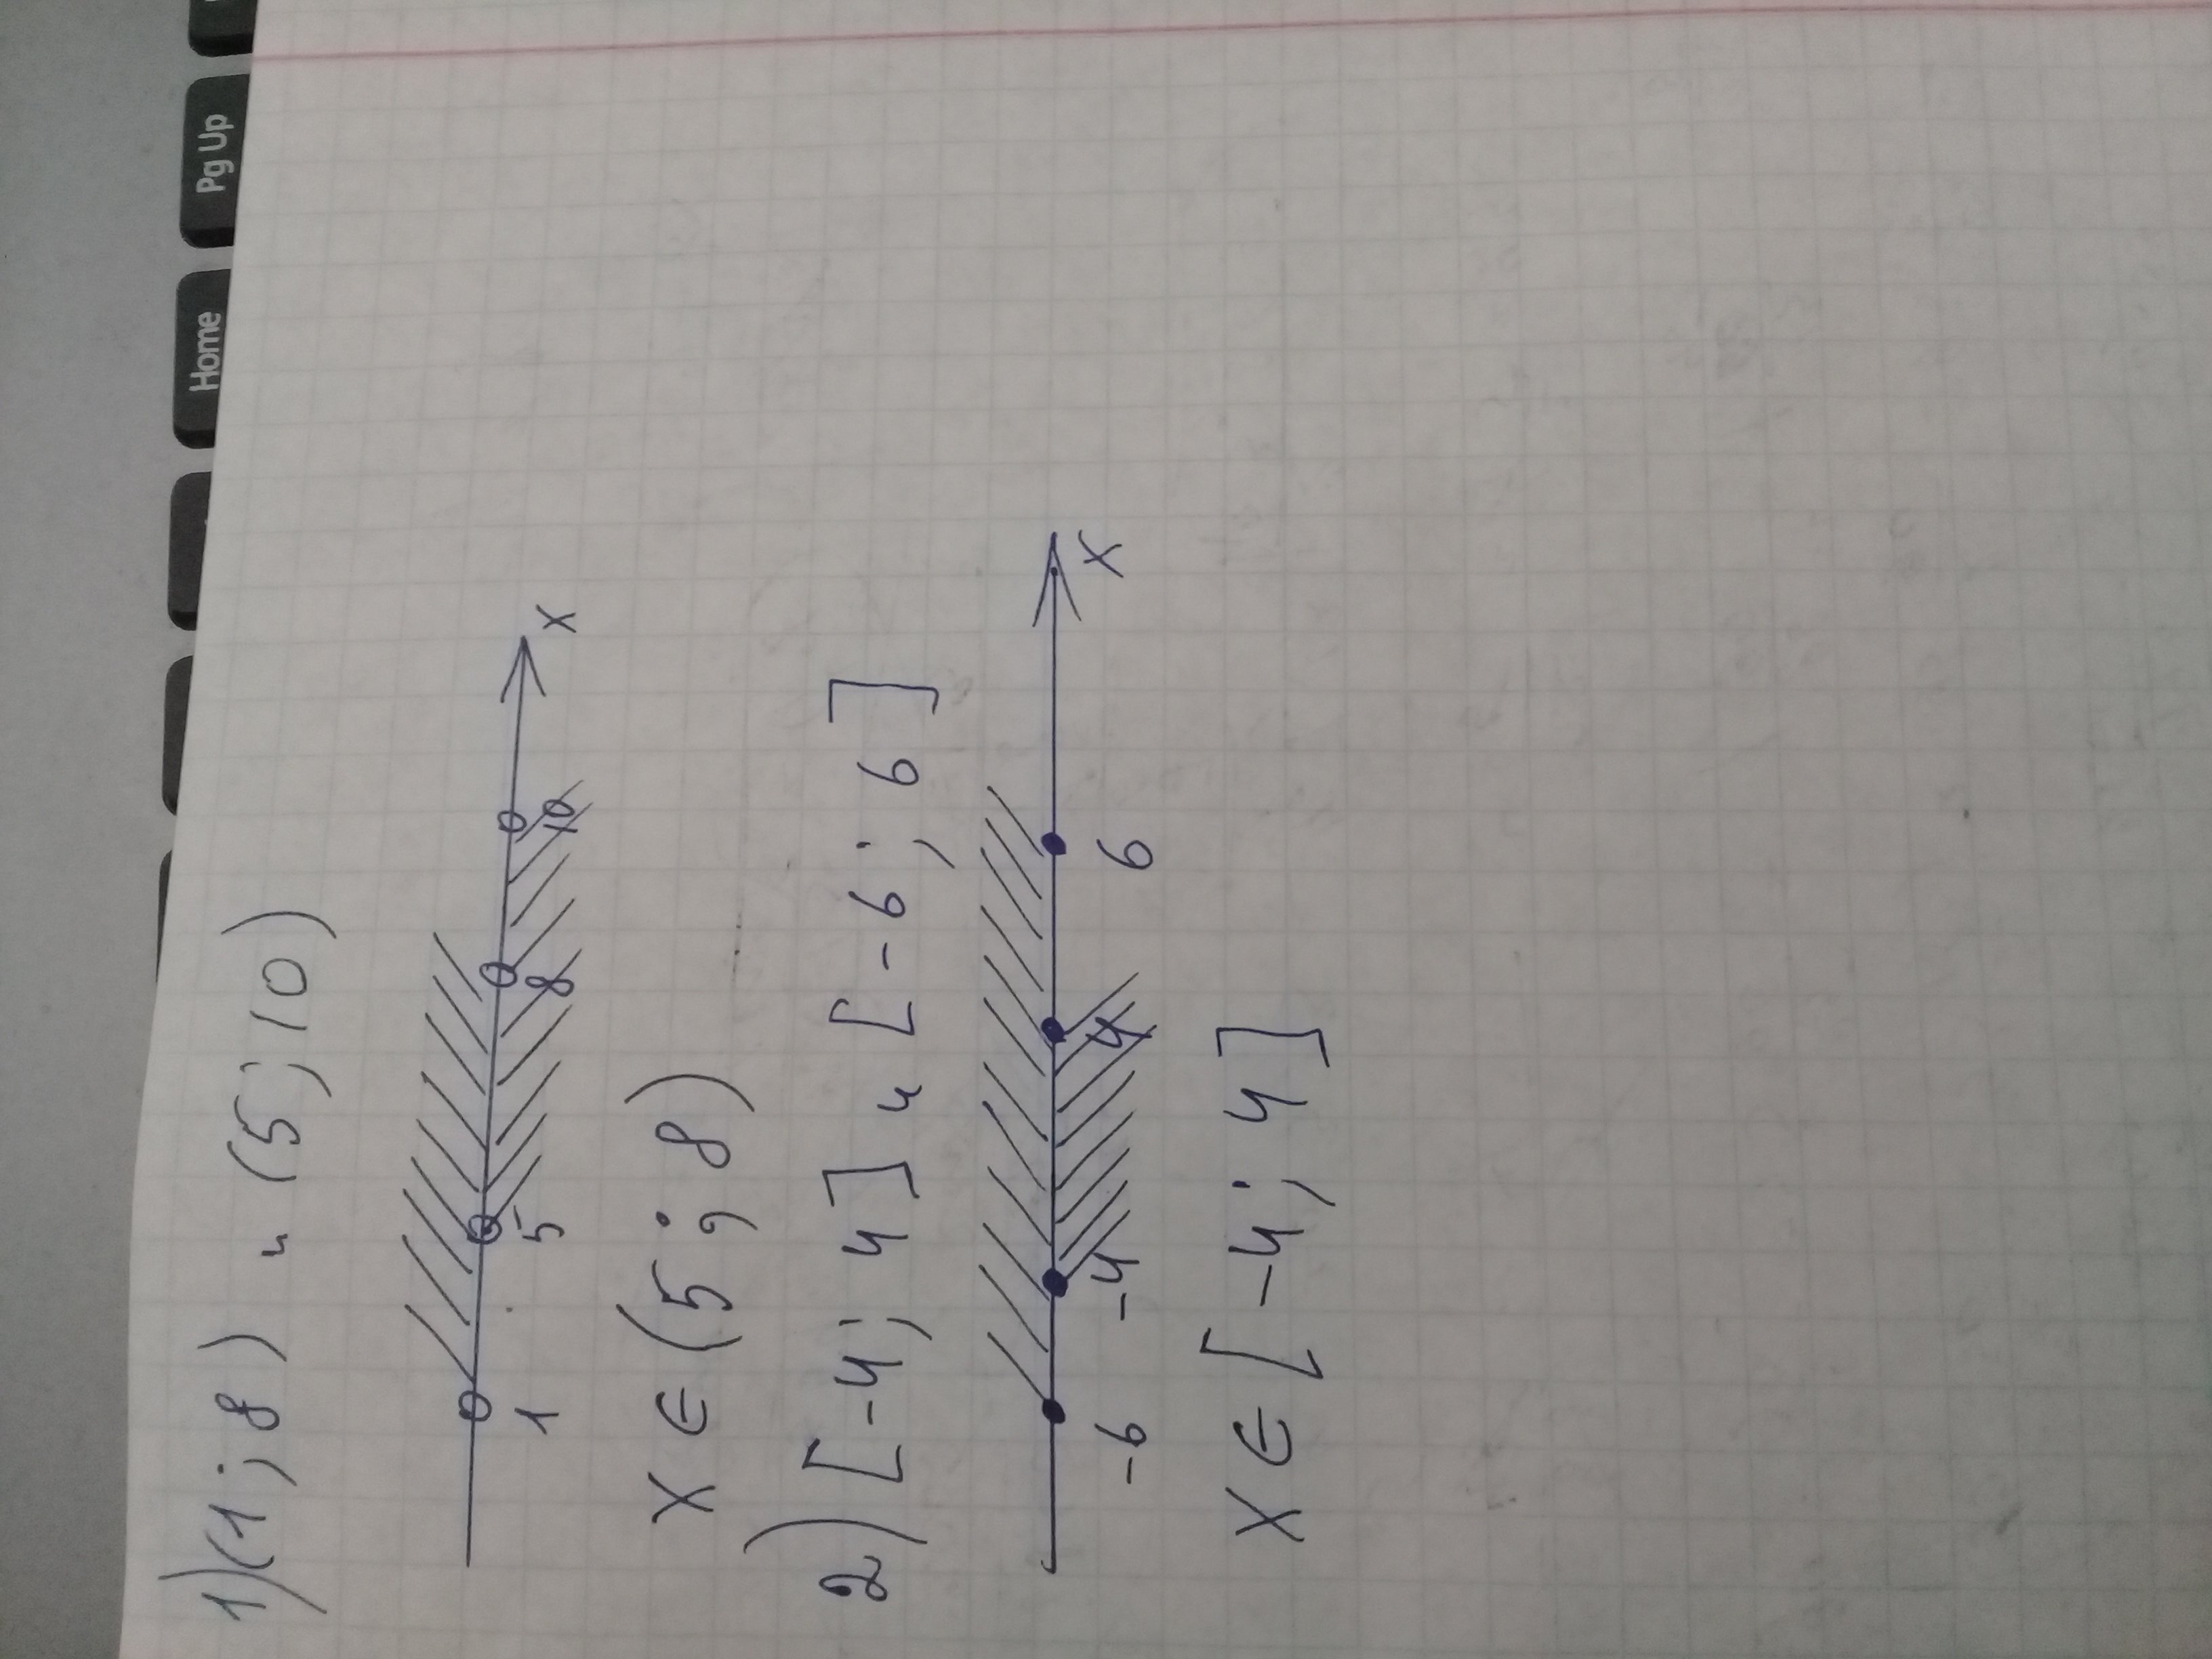 Pg Up
Home
1) (1; 8) и (5; 10)
1 5 8 10 x
x ∈ (5; 8)
2) [-4; 4] и [-6; 6]
-6 -4 4 6 x
x ∈ [-4; 4]